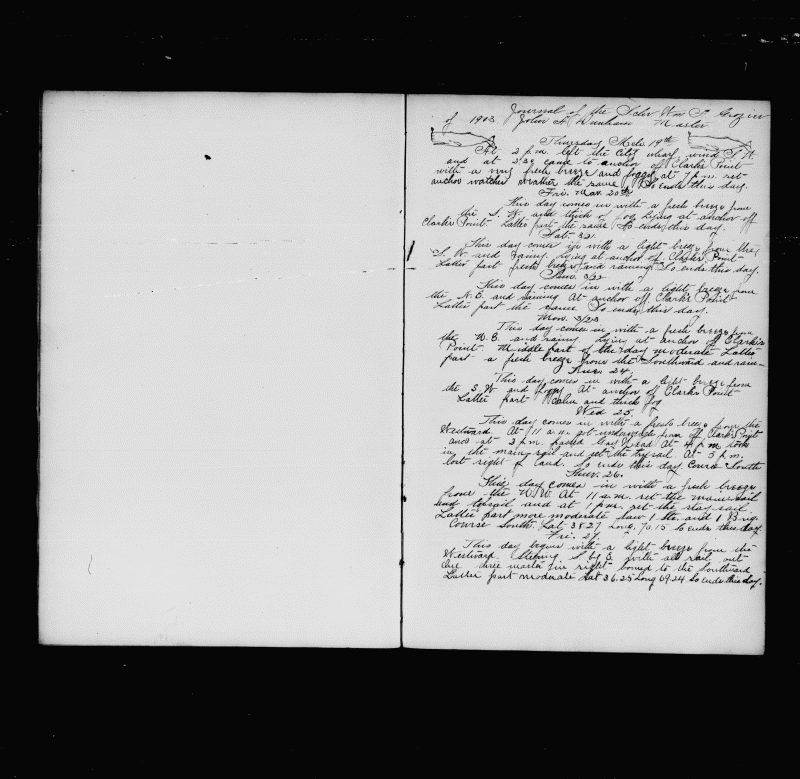 Journal of the Schr Wm T. Grozier
of 1903 John A. Dunham Master
Thursday Mch 19th
At 2 p.m. left the City wharf wind S. W.
and at 3.30 came to anchor of Clarks Point
with a very fresh breeze and foggy at 7 p.m. set
anchor watches weather the same So ends this day.
Fri. Mar. 20th
This day comes in with a fresh breeze from
the S. W. and thick of fog Lying at anchor off
Clarks Point. Latter part the same So ends this day.
Sat. 3/21.
This day comes in with a light breeze from the
S. W. and rainy. Lying at anchor of Clarks Point
Latter part fresh breeze and raining So ends this day.
Sun. 3/22
This day comes in with a light breeze from
the N.E. and raining At anchor off Clarks Point
Latter part the same So ends this day.
Mon. 3/23
This day comes in with a fresh breeze from
the N.E. and rainy. Lying at anchor of Clarks
Point. Middle part of the day moderate Latter
part a fresh breeze from the Southward and rain
Tues. 24.
This day comes in with a light breeze from
the S. W and foggy At anchor of Clarks Point
Latter part Calm and thick fog
Wed 25.
This day comes in with a fresh breeze from the
Westward. At 11 a.m. got underweigh from off Clarks Point
and at 2 p.m. passed Gay Head. At 4 p.m took
in the main sail and set the trysail. At 5 p.m.
lost sight of land. So ends this day Course South
Thur. 26.
This day comes in with a fresh breeze
from the N.W. At 11 a.m. set the main sail
and topsail and at 1 p.m. set the stay sail
Latter part more moderate Saw 1 Str. and 1 Brig.
Course South. Lat 38.27 Long. 70.15 So ends this day
Fri. 27.
This day begins with a light breeze from the
Westward Steering S by E with all sail out
One three master in sight bound to the Southward
Latter part moderate Lat 36.25 Long 69.24 So ends this day.